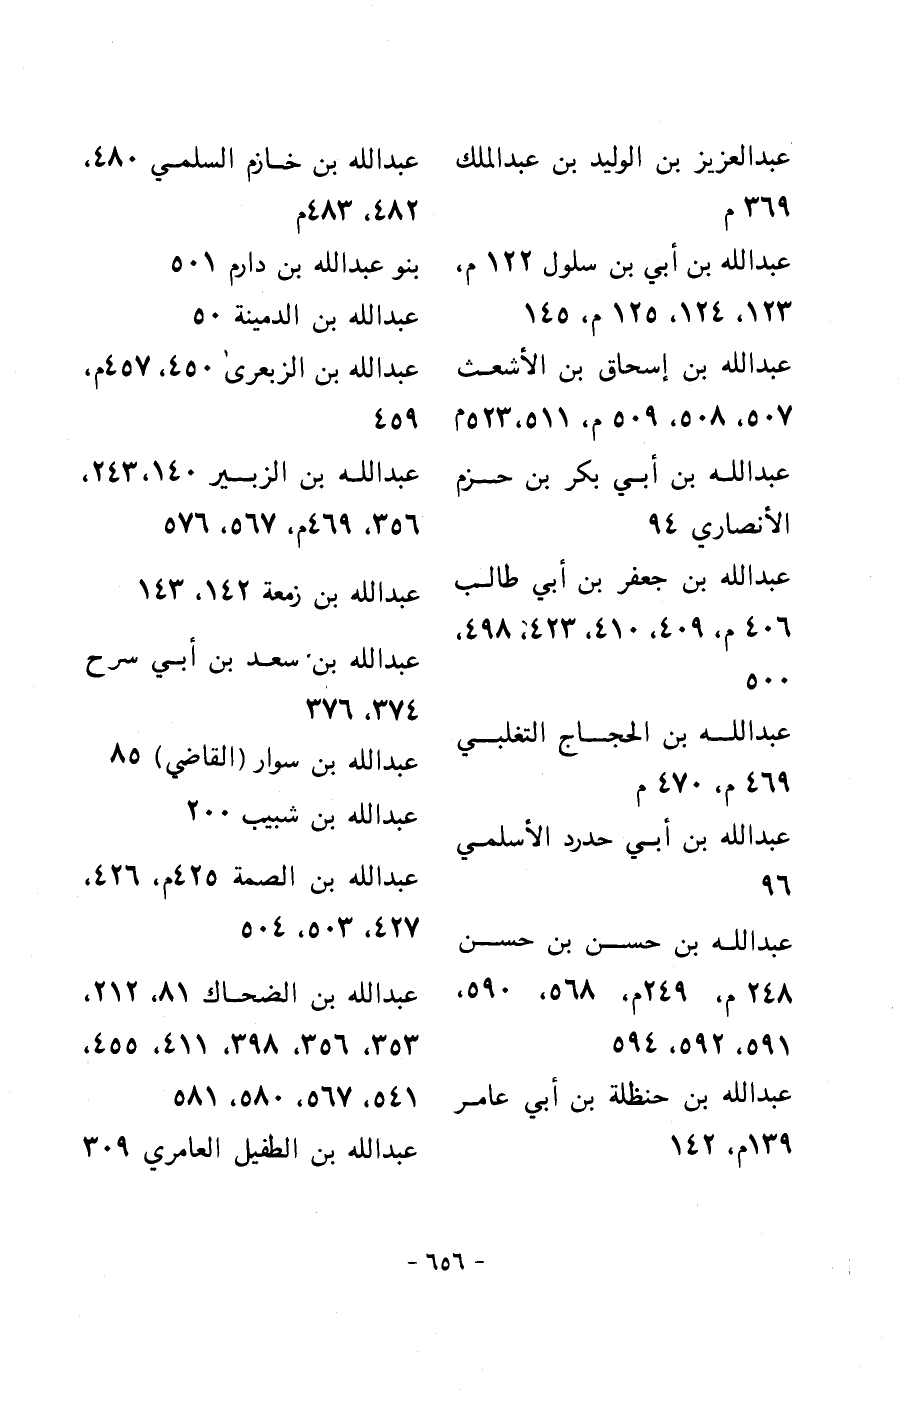 عبدالعزيز بن الوليد بن عبدالملك
٣٦٩ م
عبدالله بن أبي بن سلول ١٢٢ م،
١٢٣، ١٢٤، ١٢٥ م، ١٤٥
عبدالله بن إسحاق بن الأشعث
٥٠٧، ٥٠٨، ٥٠٩ م، ٥١١،٥٢٣م
عبدالله بن أبي بكر بن حزم
الأنصاري ٩٤
عبدالله بن جعفر بن أبي طالب
٤٠٦ م، ٤٠٩، ٤١٠، ٤٢٣، ٤٩٨،
٥٠٠
عبدالله بن الحجاج التغلبي
٤٦٩ م، ٤٧٠ م
عبدالله بن أبي حدرد الأسلمي
٩٦
عبدالله بن حسن بن حسن
٢٤٨ م، ٢٤٩م، ٥٦٨، ٥٩٠،
٥٩١، ٥٩٢، ٥٩٤
عبدالله بن حنظلة بن أبي عامر
١٣٩م، ١٤٢
عبدالله بن خازم السلمي ٤٨٠،
٤٨٢، ٤٨٣م
بنو عبدالله بن دارم ٥٠١
عبدالله بن الدمينة ٥٠
عبدالله بن الزبعرى ٤٥٠، ٤٥٧م،
٤٥٩
عبدالله بن الزبير ١٤٠،٢٤٣،
٣٥٦، ٤٦٩م، ٥٦٧، ٥٧٦
عبدالله بن زمعة ١٤٢، ١٤٣
عبدالله بن سعد بن أبي سرح
٣٧٤، ٣٧٦
عبدالله بن سوار (القاضي) ٨٥
عبدالله بن شبيب ٢٠٠
عبدالله بن الصمة ٤٢٥م، ٤٢٦،
٤٢٧، ٥٠٣، ٥٠٤
عبدالله بن الضحاك ٨١، ٢١٢،
٣٥٣، ٣٥٦، ٣٩٨، ٤١١، ٤٥٥،
٥٤١، ٥٦٧، ٥٨٠، ٥٨١
عبدالله بن الطفيل العامري ٣٠٩
- ٦٥٦ -